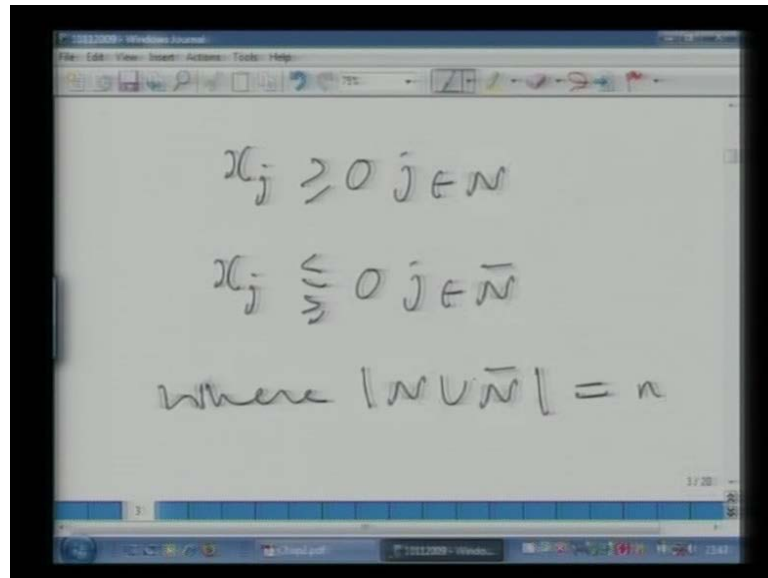 10112009 - Windows Journal
File Edit View Insert Actions Tools Help
75%
x_j ≥ 0 j ∈ N
x_j ≤≥ 0 j ∈ N̄
where |N ∪ N̄| = n
3 / 20
3
10112009 - Windo...